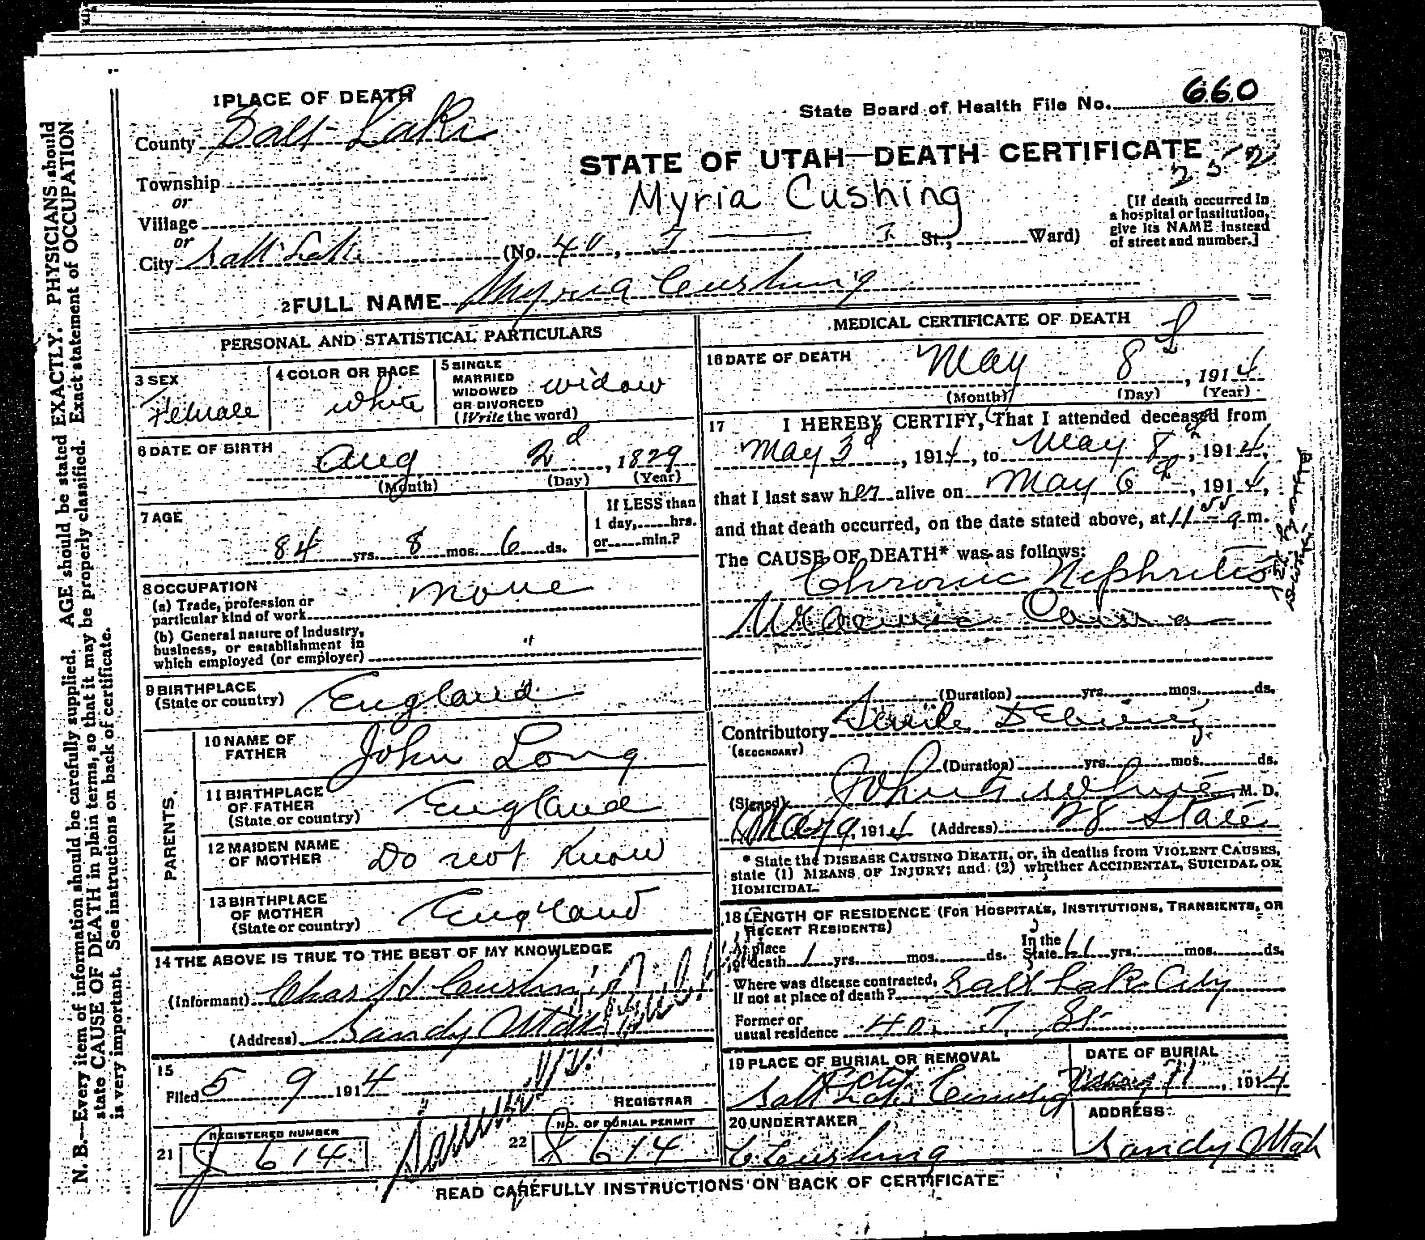 1 PLACE OF DEATH
State Board of Health File No. 660
County Salt Lake
STATE OF UTAH—DEATH CERTIFICATE
252
Township
or
Myria Cushing
Village
or
[If death occurred in a hospital or institution, give its NAME instead of street and number.]
City Salt Lake (No. 40, I St., Ward)
2 FULL NAME Myria Cushing
PERSONAL AND STATISTICAL PARTICULARS
3 SEX
Female
4 COLOR OR RACE
white
5 SINGLE
MARRIED
WIDOWED
OR DIVORCED
(Write the word)
widow
6 DATE OF BIRTH
Aug 2d, 1829
(Month) (Day) (Year)
7 AGE
84 yrs. 8 mos. 6 ds.
If LESS than
1 day,.....hrs.
or.....min.?
8 OCCUPATION
(a) Trade, profession or
particular kind of work
none
(b) General nature of industry,
business, or establishment in
which employed (or employer) "
9 BIRTHPLACE
(State or country)
England
PARENTS
10 NAME OF
FATHER
John Long
11 BIRTHPLACE
OF FATHER
(State or country)
England
12 MAIDEN NAME
OF MOTHER
Do not Know
13 BIRTHPLACE
OF MOTHER
(State or country)
England
14 THE ABOVE IS TRUE TO THE BEST OF MY KNOWLEDGE
(Informant) Chas H Cushing
(Address) Sandy Utah
15
Filed 5 9 1914
REGISTRAR
21 REGISTERED NUMBER
J 614
22 NO. OF BURIAL PERMIT
J 614
MEDICAL CERTIFICATE OF DEATH
16 DATE OF DEATH
May 8, 1914
(Month) (Day) (Year)
17 I HEREBY CERTIFY, That I attended deceased from
May 3d, 1914, to May 8, 1914,
that I last saw her alive on May 6, 1914,
and that death occurred, on the date stated above, at 11 55 a m.
The CAUSE OF DEATH* was as follows:
Chronic Nephritis
Uraemic Coma
(Duration) yrs. mos. ds.
Contributory Senile Debility
(SECONDARY)
(Duration) yrs. mos. ds.
(Signed) M. D.
May 9, 1914 (Address) 28 State
* State the DISEASE CAUSING DEATH, or, in deaths from VIOLENT CAUSES,
state (1) MEANS OF INJURY; and (2) whether ACCIDENTAL, SUICIDAL OR
HOMICIDAL.
18 LENGTH OF RESIDENCE (FOR HOSPITALS, INSTITUTIONS, TRANSIENTS, OR
RECENT RESIDENTS)
At place
of death 1 yrs. mos. ds.
In the
State yrs. mos. ds.
Where was disease contracted,
if not at place of death? Salt Lake City
Former or
usual residence 40 I St
19 PLACE OF BURIAL OR REMOVAL
Salt Lake City Cemetery
DATE OF BURIAL
May 11, 1914
20 UNDERTAKER
C Cushing
ADDRESS
Sandy Utah
READ CAREFULLY INSTRUCTIONS ON BACK OF CERTIFICATE
N. B.—Every item of information should be carefully supplied. AGE should be stated EXACTLY. PHYSICIANS should
state CAUSE OF DEATH in plain terms, so that it may be properly classified. Exact statement of OCCUPATION
is very important. See instructions on back of certificate.